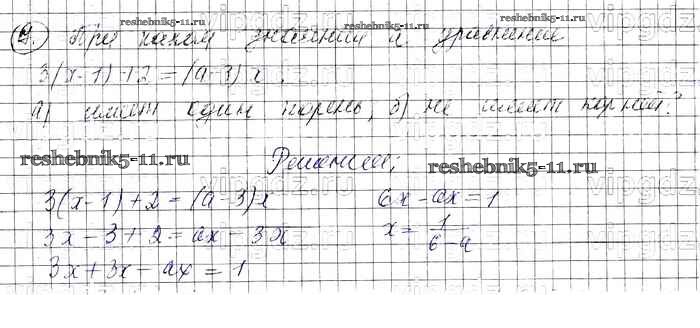 reshebnik5-11.ru reshebnik5-11.ru
4. При каком значении a уравнение
reshebnik5-11.ru
3(x-1)+2=(a-3)x:
а) имеет один корень, б) не имеет корней?
Решение:
reshebnik5-11.ru reshebnik5-11.ru
3(x-1)+2=(a-3)x
3x-3+2=ax-3x
3x+3x-ax=1
6x-ax=1
x=1/(6-a)
vipgdz
vipgdz.ru
vipgdz